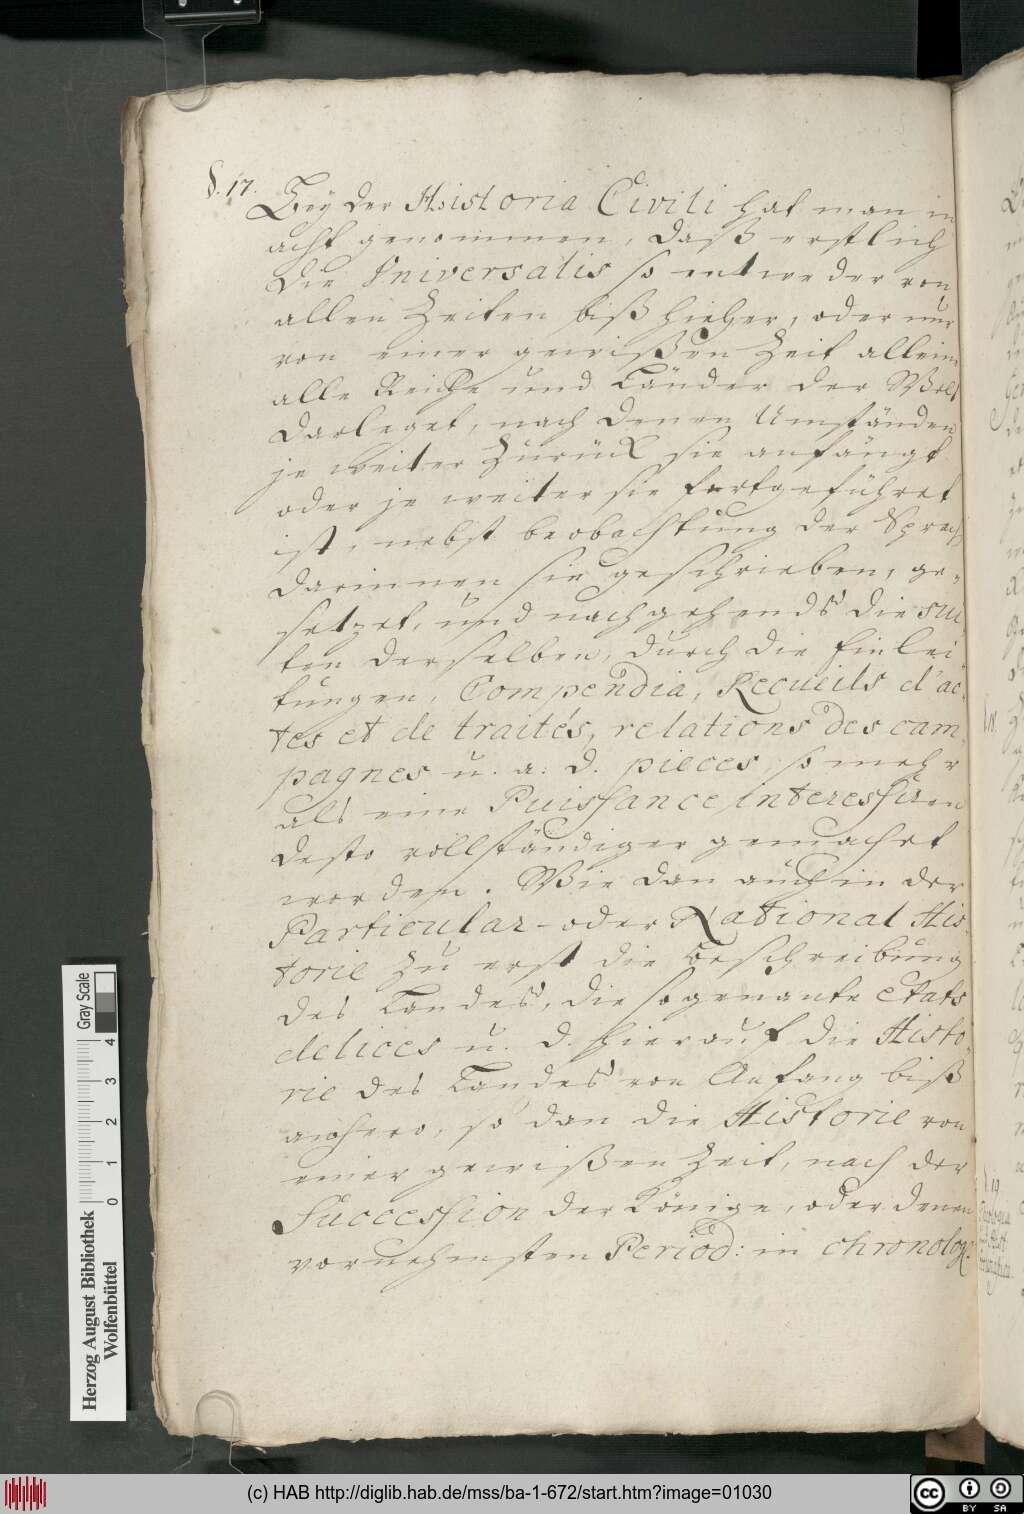 §. 17. Bey der Historia Civili hat man in
acht genommen, daß erstlich
die Universalis so entweder von
allen Zeiten biß hieher, oder nur
von einer gewißen Zeit alleine
alle Reiche und Länder der Welt
darleget, nach denen Umständen
je weiter zurück sie anfängt
oder je weiter sie fortgeführet
ist, nebst beobachtung der Sprach
darinnen sie geschrieben, ge-
setzet, und nachgehends die sui
ten derselben, durch die Einlei
tungen, Compendia, Recueils d'ac-
tes et de traités, relations des cam-
pagnes u. a. d. pieces, so mehr
als eine Puissance interessiren
desto vollständiger gemacht
worden. Wie dan auch in der
Particular- oder National His-
torie zu erst die Beschreibung
des Landes, die sogenante etats
delices u. d. hierauf die Histo-
rie des Landes von Anfang biß
anhero, so dan die Historie von
einer gewißen Zeit, nach der
Succession der Könige, oder denen
vornehmsten Period: in chronolog:
§ 18.
§ 19
Herzog August Bibliothek
Wolfenbüttel
0 1 2 3 4
Gray Scale
(c) HAB http://diglib.hab.de/mss/ba-1-672/start.htm?image=01030
cc BY SA